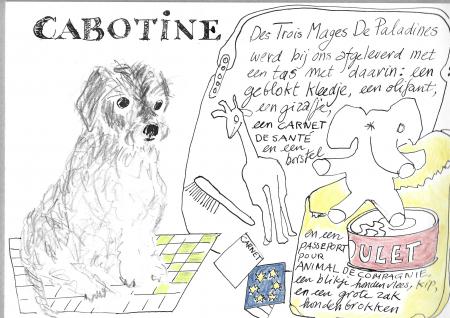 CABOTINE
Des Trois Mages De Paladines
werd bij ons afgeleverd met
een tas met daarin: een
geblokt kleedje, een olifant,
een girafje,
een CARNET
DE SANTÉ
en een
borstel
CARNET
OULET
en een
PASSEPORT
POUR
ANIMAL DE COMPAGNIE,
een blikje hondenvlees, kip,
en een grote zak
hondenbrokken